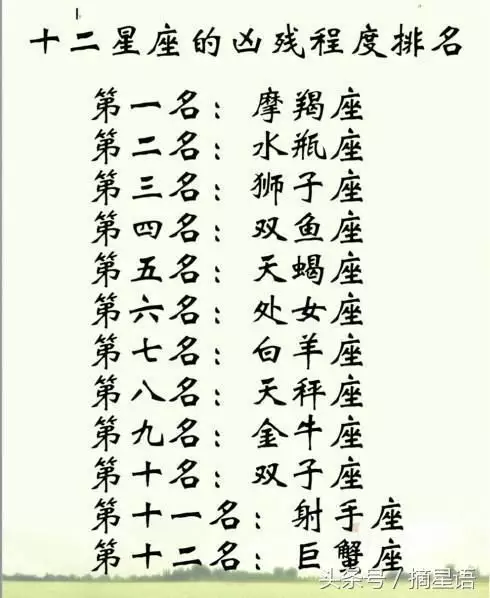 十二星座的凶残程度排名
第一名：摩羯座
第二名：水瓶座
第三名：狮子座
第四名：双鱼座
第五名：天蝎座
第六名：处女座
第七名：白羊座
第八名：天秤座
第九名：金牛座
第十名：双子座
第十一名：射手座
第十二名：巨蟹座
头条号/摘星语